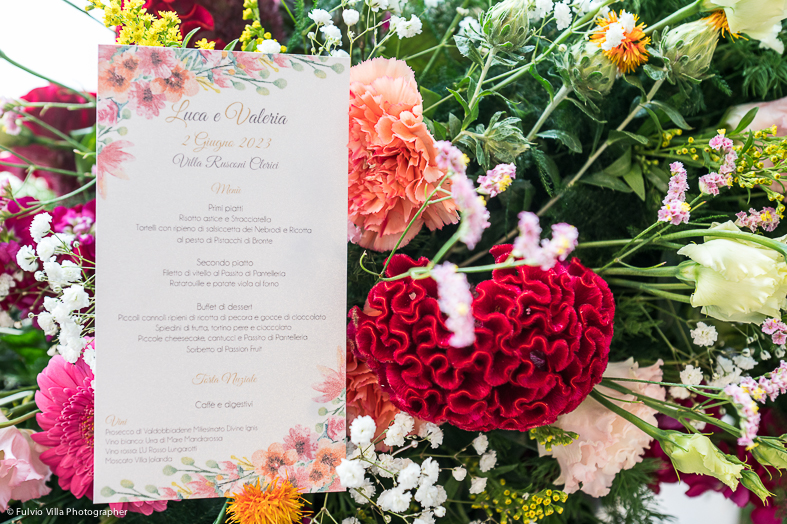 Luca e Valeria
2 Giugno 2023
Villa Rusconi Clerici
Menù
Primi piatti
Risotto astice e Stracciatella
Tortelli con ripieno di salsiccetta dei Nebrodi e Ricotta
al pesto di Pistacchi di Bronte
Secondo piatto
Filetto di vitello al Passito di Pantelleria
Ratatouille e patate viola al forno
Buffet di dessert
Piccoli cannoli ripieni di ricotta di pecora e gocce di cioccolato
Spiedini di frutta, tortino pere e cioccolato
Piccole cheesecake, cantucci e Passito di Pantelleria
Sorbetto al Passion Fruit
Torta Nuziale
Caffè e digestivi
Vini
Prosecco di Valdobbiadene Millesimato Divine Igris
Vino bianco Urra di Mare Mandrarossa
Vino rosso LU Rosso Lungarotti
Moscato Villa Jolanda
© Fulvio Villa Photographer